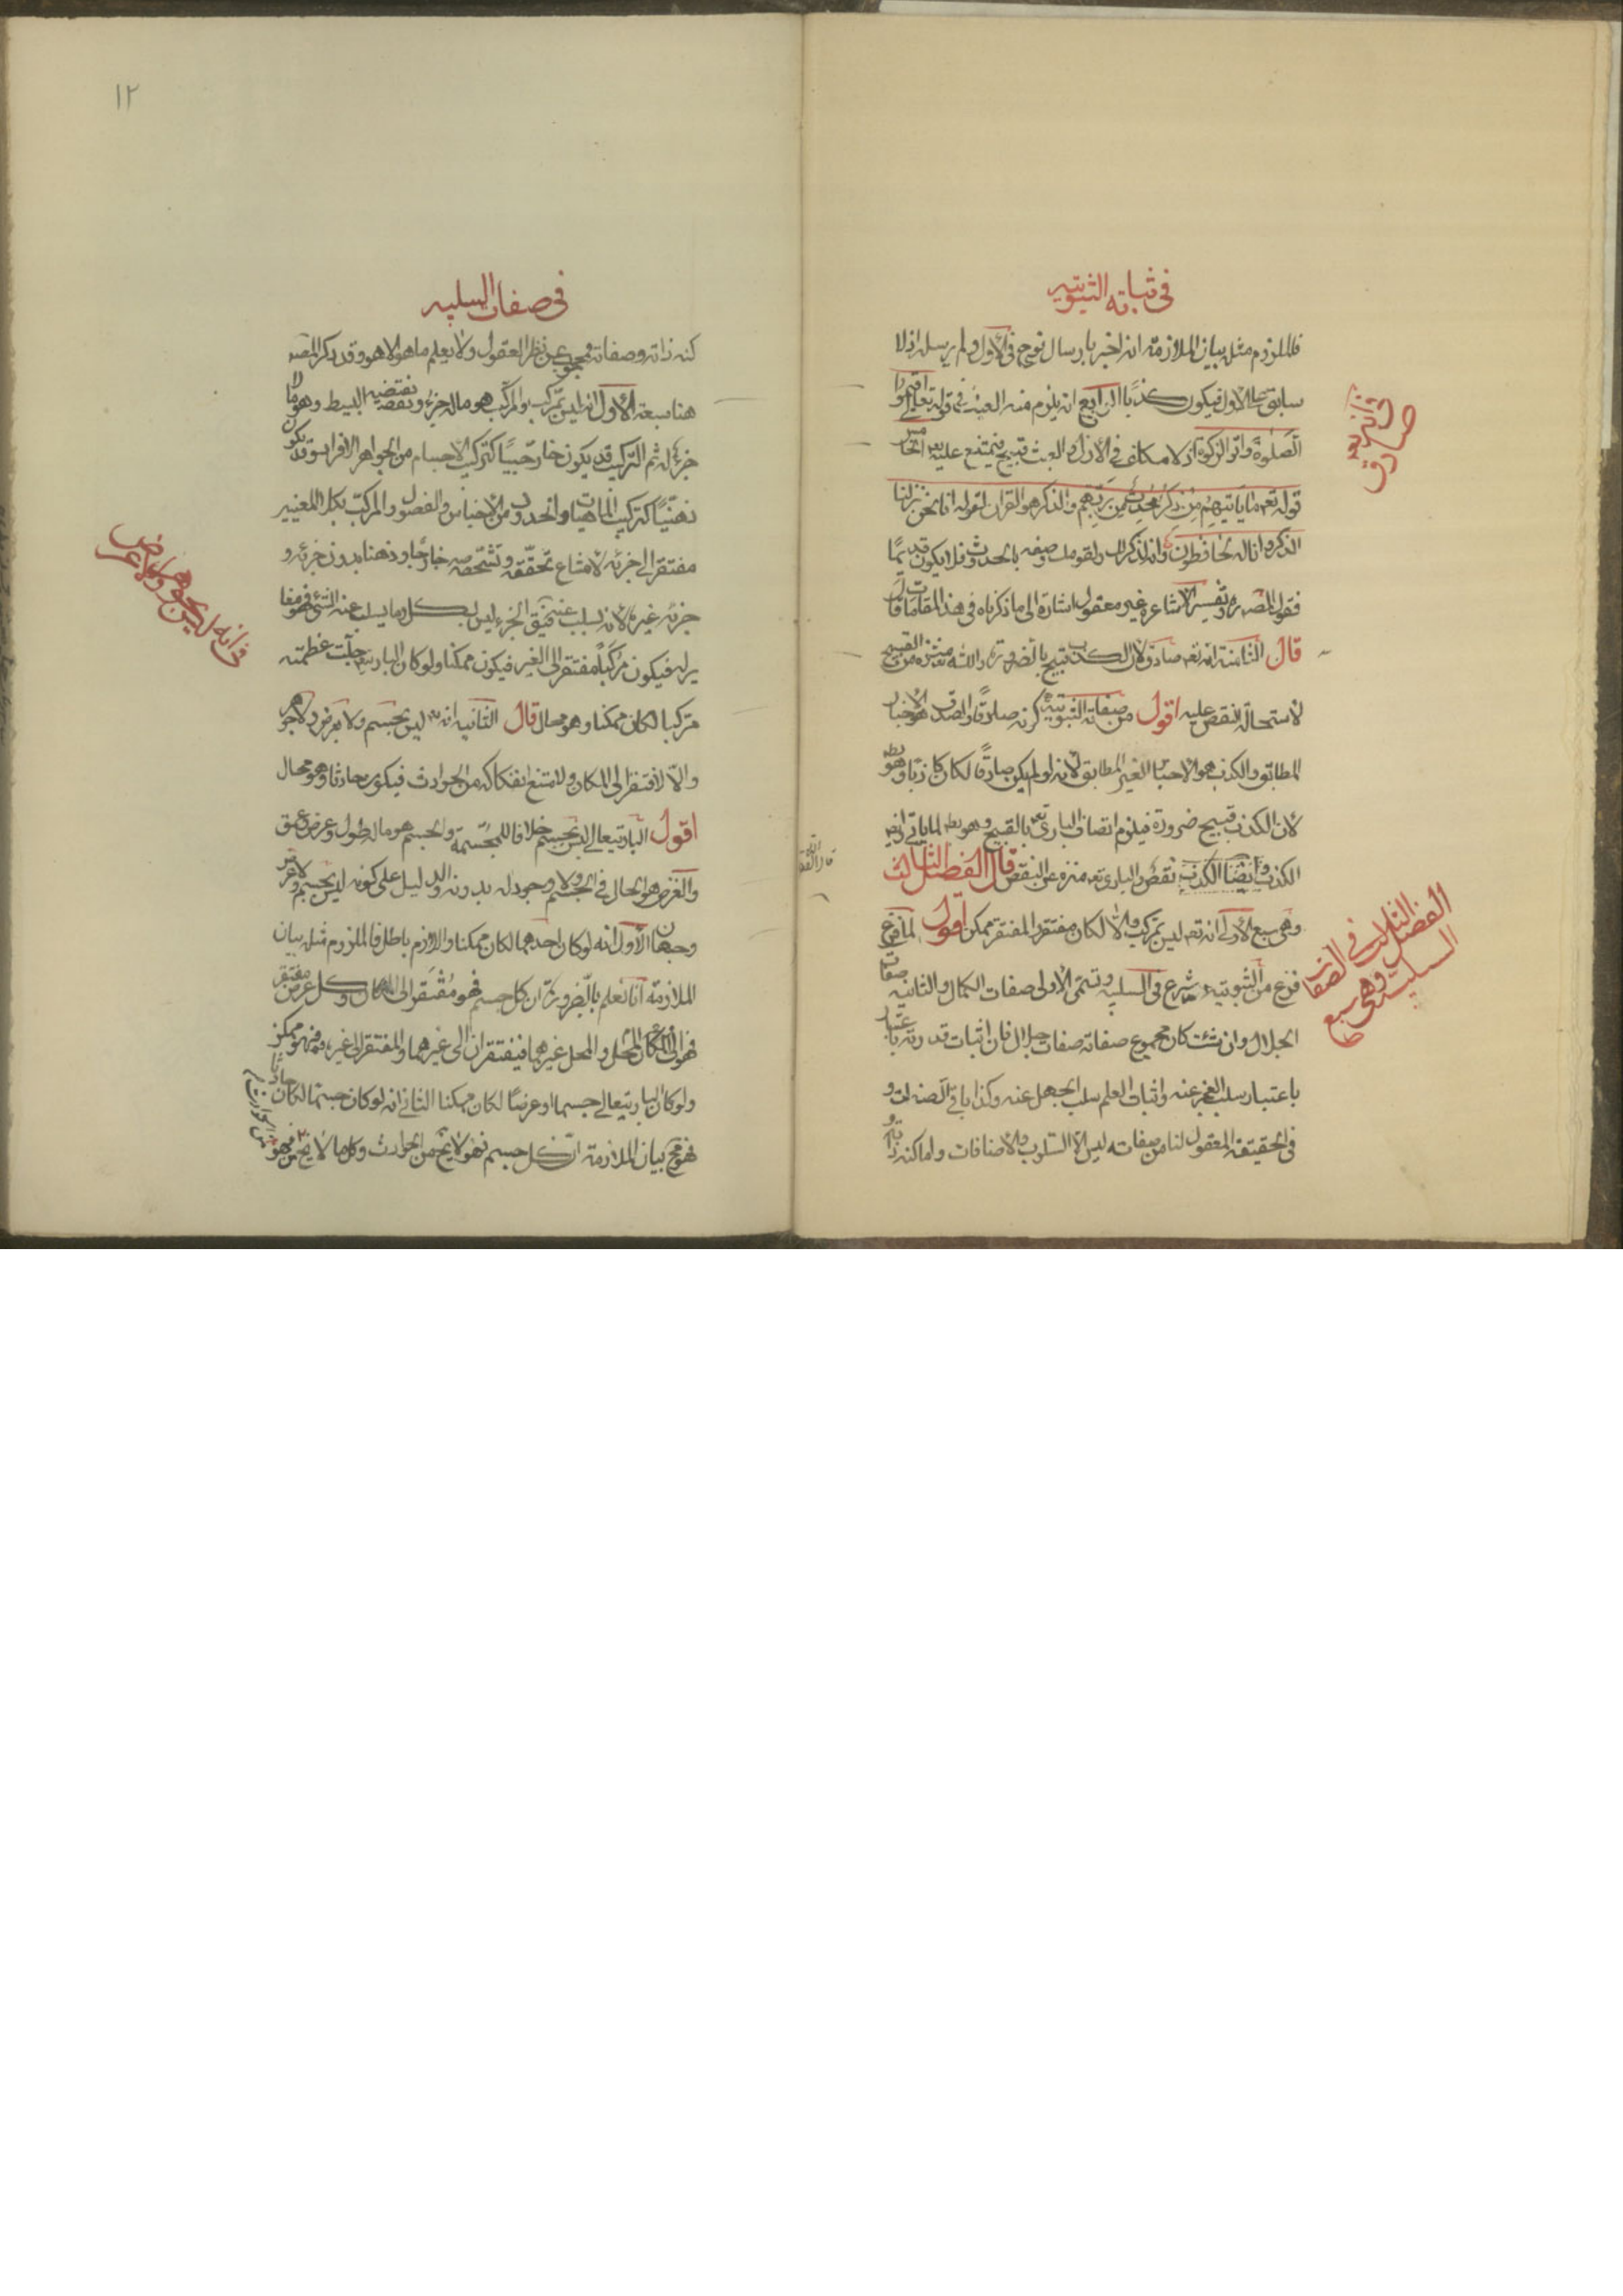 في ثباته الثبوتيه
فالملزوم مثله بيان الملازمة انه اخبر بارسال نوح ع في الأزل ولم يرسله اذ لا
سابق على الازل فيكون كذبا الرابع انه يلزم منه العبث في قوله تعالى اقيموا
الصلوة واتوا الزكوة اذ لا مكلف في الازل والعبث قبيح فيمتنع عليه تعه الخامس
قوله تعه ما ياتيهم من ذكر من ربهم محدث والذكر هو القران لقوله انا نحن نزلنا
الذكر وانا له لحافظون وانه لذكر لك ولقومك وصفه بالحدوث فلا يكون قديما
فقول المصره وتفسير الاشاعرة غير معقول اشارة الى ما ذكرناه في هذا المقامات قال
قال الثامنة انه تعه صادق لان الكذب قبيح بالضرورة والله تعه منزه من القبيح
لاستحالة النقص عليه اقول من صفاته الثبوتية كونه صادقا والصدق هو الاخبار
المطابق والكذب هو الاخبار الغير المطابق لانه لو لم يكن صادقا لكان كاذبا وهو بط
لان الكذب قبيح ضرورة فيلزم اتصاف الباري تعه بالقبيح وهو بط لما ياتي ايضه
الكذب وايضا الكذب نقص والباري تعه منزه عن النقص قال الفصل الثالث
وهي سبع الاولى انه تعه ليس بمركب والا لكان مفتقرا والمفتقر ممكن اقول لما فرغ
فرغ من الثبوتيه شرع في السلبيه وتسمى الاولى صفات الكمال والثانيه صفات
الجلال وان شئت كان مجموع صفاته صفات جلال فان اثبات قدرته باعتبار
باعتبار سلب العجز عنه واثبات العلم سلب الجهل عنه وكذا باقي الصفات و
في الحقيقة المعقول لنا من صفاته ليس الا السلوب والاضافات واما كنه ذاته و
في انه تعه
صادق
الفصل الثالث في الصفات
السلبية وهي سبع
١٢
في صفات السلبيه
كنه ذاته وصفاته فمحجوب عن نظر العقول ولا يعلم ما هو الا هو وقد ذكر المصه
هنا سبعة الاول انه ليس بمركب والمركب هو ماله جزء ونقيضه البسيط وهو ما لا
جزء له ثم التركيب قد يكون خارجيا كتركيب الاجسام من الجواهر الافراد وقد يكون
ذهنيا كتركيب الماهيات والحدود من الاجناس والفصول والمركب بكلا المعنيين
مفتقر الى جزئه لامتناع تحققه وتشخصه خارجا وذهنا بدون جزئه و
جزئه غيره لانه يسلب عنه فيق الجزء ليس بكل وما يسلب عنه الشئ فهو مغا
ير له فيكون مركبا مفتقرا الى الغير فيكون ممكنا ولو كان الباري جلت عظمته
مركبا لكان ممكنا وهو محال قال الثانيه انه تعه ليس بجسم ولا بعرض ولا جوهر
والا لافتقر الى المكان ولامتنع انفكاكه من الحوادث فيكون حادثا وهو محال
اقول الباري تعالى ليس بجسم خلافا للمجسمة والجسم هو ماله طول وعرض وعمق
والعرض هو الحال في الجسم ولا وجود له بدونه والدليل على كونه ليس بجسم ولا عرض
وجهان الاول انه لو كان احدهما لكان ممكنا واللازم باطل فالملزوم مثله بيان
الملازمة انا نعلم بالضرورة ان كل جسم فهو مفتقر الى المكان وكل عرض مفتقر
الى المحل والمحل غيرهما فيفتقران الى غيرهما والمفتقر الى غيره ممكن
ولو كان الباري تعالى جسما او عرضا لكان ممكنا الثاني انه لو كان جسما لكان حادثا
فهو مح بيان الملازمة ان كل جسم فهو لا يخ من الحوادث وكل ما لا يخ فهو
في انه ليس بجوهر ولا عرض